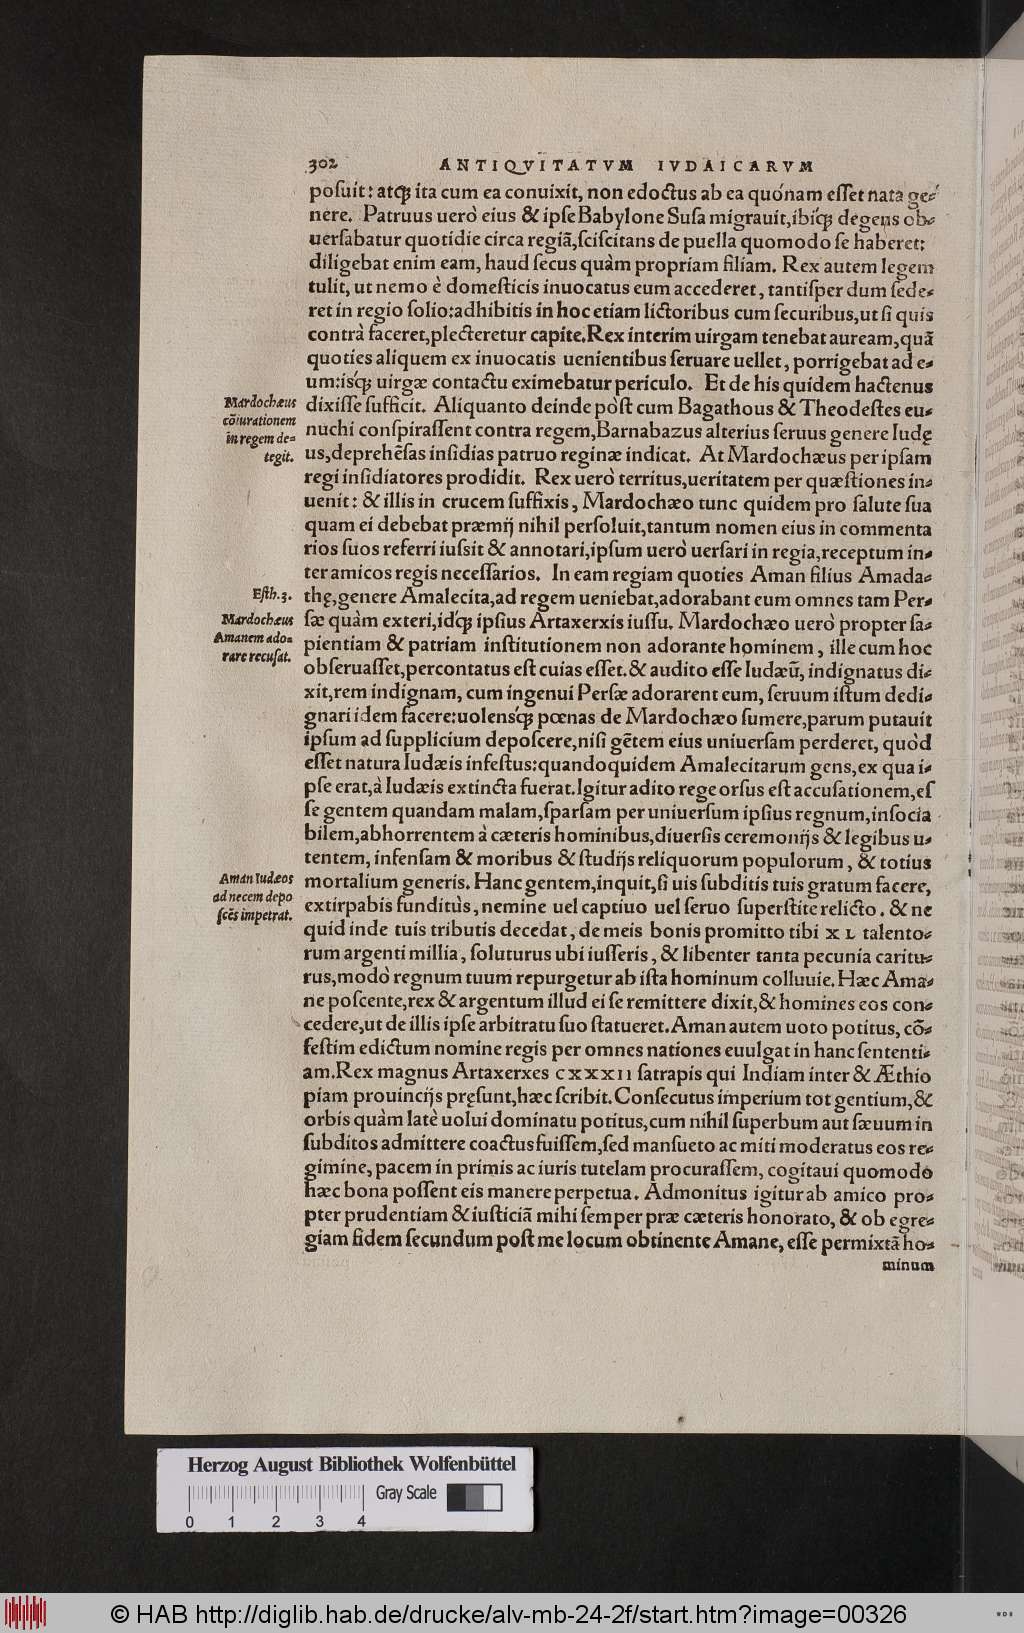 302 ANTIQVITATVM IVDAICARVM
poſuit: atq́ʒ ita cum ea conuixit, non edoctus ab ea quónam eſſet nata ge⸗
nere. Patruus uerò eius & ipſe Babylone Suſa migrauit, ibíq́ʒ degens ob⸗
uerſabatur quotidie circa regiã, ſciſcitans de puella quomodo ſe haberet:
diligebat enim eam, haud ſecus quàm propriam filiam. Rex autem legem
tulit, ut nemo è domeſticis inuocatus eum accederet, tantiſper dum ſede⸗
ret in regio ſolio: adhibitis in hoc etiam lictoribus cum ſecuribus, ut ſi quis
contrà faceret, plecteretur capite. Rex interim uirgam tenebat auream, quã
quoties aliquem ex inuocatis uenientibus ſeruare uellet, porrigebat ad e⸗
um: iśq́ʒ uirgæ contactu eximebatur periculo. Et de his quidem hactenus
Mardochæus
cõiurationem
in regem de⸗
tegit.
dixiſſe ſufficit. Aliquanto deinde pòſt cum Bagathous & Theodeſtes eu⸗
nuchi conſpiraſſent contra regem, Barnabazus alterius ſeruus genere Iudę
us, deprehẽſas inſidias patruo reginæ indicat. At Mardochæus per ipſam
regi inſidiatores prodidit. Rex uerò territus, ueritatem per quæſtiones in⸗
uenit: & illis in crucem ſuffixis, Mardochæo tunc quidem pro ſalute ſua
quam ei debebat præmij nihil perſoluit, tantum nomen eius in commenta
rios ſuos referri iuſsit & annotari, ipſum uerò uerſari in regia, receptum in⸗
ter amicos regis neceſſarios. In eam regiam quoties Aman filius Amada⸗
Eſth. 3.
Mardochæus
Amanem ado⸗
rare recuſat.
thę, genere Amalecita, ad regem ueniebat, adorabant eum omnes tam Per⸗
ſæ quàm exteri, idq́ʒ ipſius Artaxerxis iuſſu. Mardochæo uerò propter ſa⸗
pientiam & patriam inſtitutionem non adorante hominem, ille cum hoc
obſeruaſſet, percontatus eſt cuias eſſet. & audito eſſe Iudæũ, indignatus di⸗
xit, rem indignam, cum ingenui Perſæ adorarent eum, ſeruum iſtum dedi⸗
gnari idem facere: uolenśq́ʒ pœnas de Mardochæo ſumere, parum putauit
ipſum ad ſupplicium depoſcere, niſi gẽtem eius uniuerſam perderet, quòd
eſſet natura Iudæis infeſtus: quandoquidem Amalecitarum gens, ex qua i⸗
pſe erat, à Iudæis extincta fuerat. Igitur adito rege orſus eſt accuſationem, eſ
ſe gentem quandam malam, ſparſam per uniuerſum ipſius regnum, inſocia
bilem, abhorrentem à cæteris hominibus, diuerſis ceremonijs & legibus u⸗
tentem, infenſam & moribus & ſtudijs reliquorum populorum, & totius
Aman Iudæos
ad necem depo
ſcẽs impetrat.
mortalium generis. Hanc gentem, inquit, ſi uis ſubditis tuis gratum facere,
extirpabis funditùs, nemine uel captiuo uel ſeruo ſuperſtite relicto. & ne
quid inde tuis tributis decedat, de meis bonis promitto tibi XL talento⸗
rum argenti millia, ſoluturus ubi iuſſeris, & libenter tanta pecunia caritu⸗
rus, modò regnum tuum repurgetur ab iſta hominum colluuie. Hæc Ama⸗
ne poſcente, rex & argentum illud ei ſe remittere dixit, & homines eos con⸗
cedere, ut de illis ipſe arbitratu ſuo ſtatueret. Aman autem uoto potitus, cõ⸗
feſtim edictum nomine regis per omnes nationes euulgat in hanc ſententi⸗
am. Rex magnus Artaxerxes CXXXII ſatrapis qui Indiam inter & Æthio
piam prouincijs pręſunt, hæc ſcribit. Conſecutus imperium tot gentium, &
orbis quàm latè uolui dominatu potitus, cum nihil ſuperbum aut ſæuum in
ſubditos admittere coactus fuiſſem, ſed manſueto ac miti moderatus eos re⸗
gimine, pacem in primis ac iuris tutelam procuraſſem, cogitaui quomodo
hæc bona poſſent eis manere perpetua. Admonitus igitur ab amico pro⸗
pter prudentiam & iuſticiã mihi ſemper præ cæteris honorato, & ob egre⸗
giam fidem ſecundum poſt me locum obtinente Amane, eſſe permixtã ho⸗
minum
Herzog August Bibliothek Wolfenbüttel
Gray Scale
0 1 2 3 4
© HAB http://diglib.hab.de/drucke/alv-mb-24-2f/start.htm?image=00326